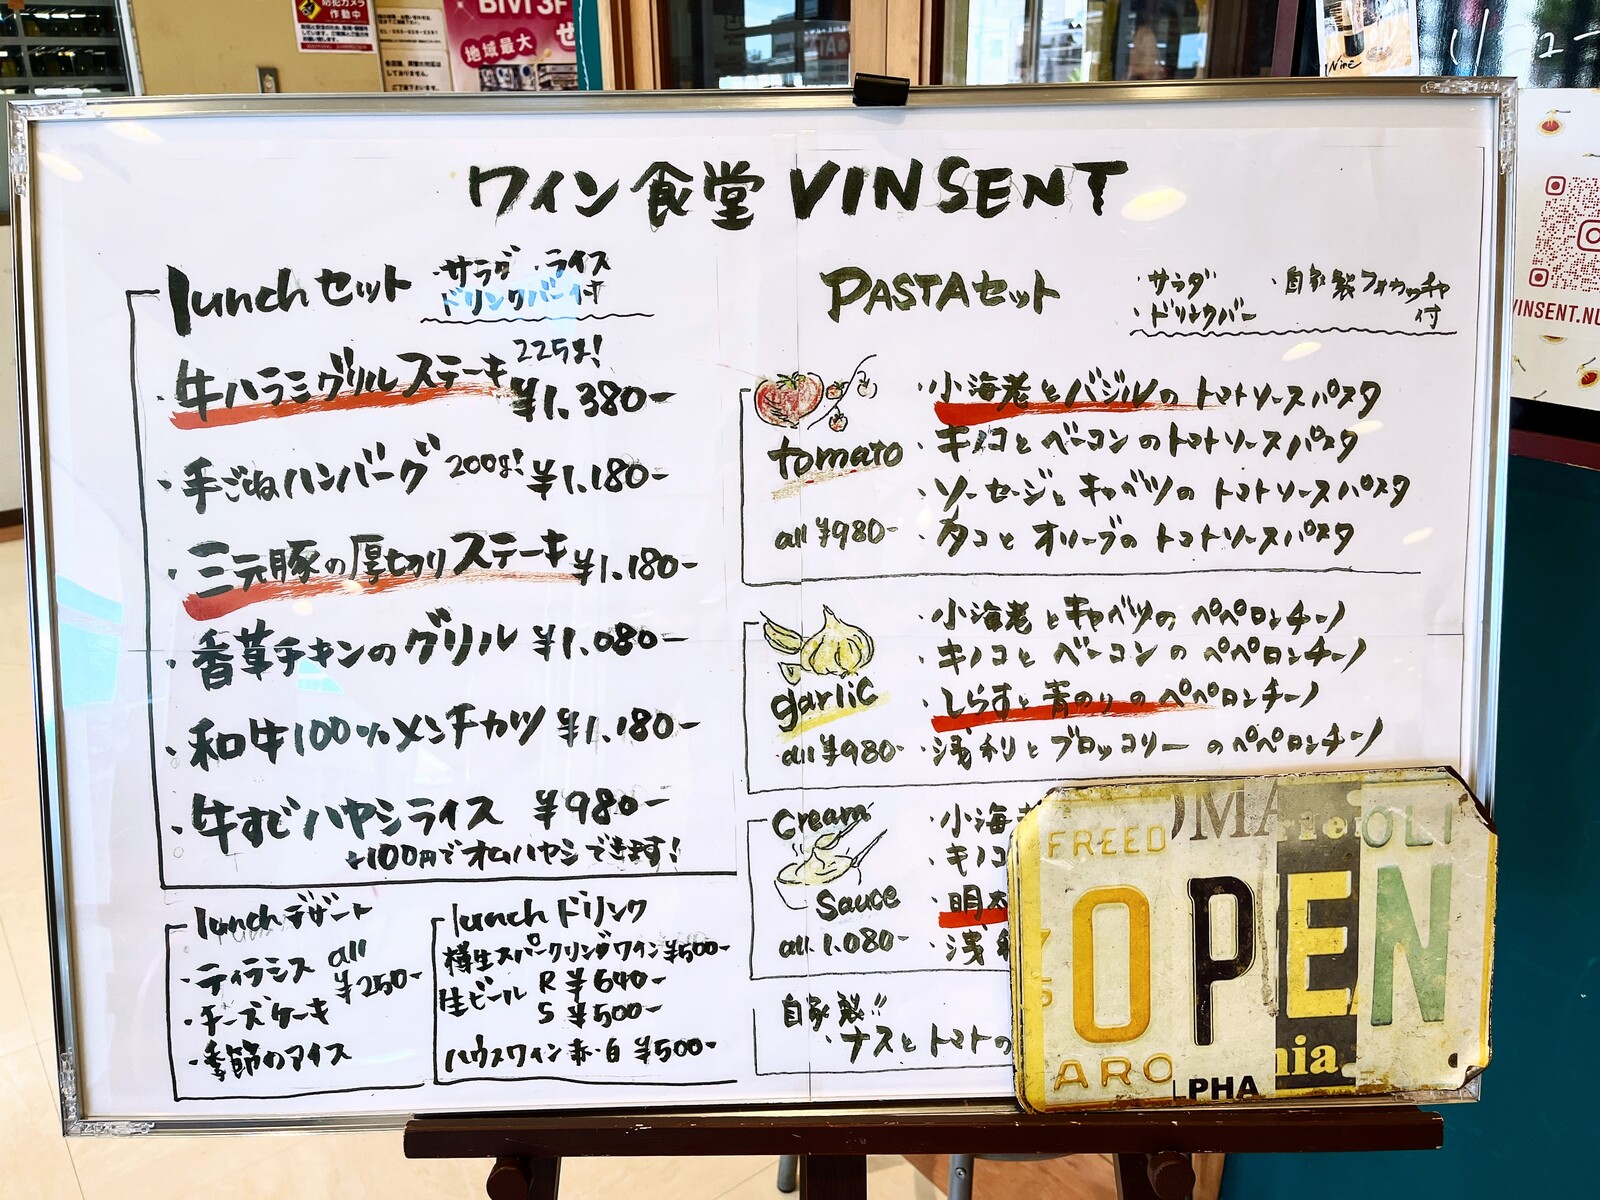 防犯カメラ
作動中
BiVi 3F
地域最大
ワイン食堂 VINSENT
lunchセット
・サラダ ・ライス
ドリンクバー付
・牛ハラミグリルステーキ 225g! ¥1.380-
・手ごねハンバーグ 200g! ¥1.180-
・三元豚の厚切りステーキ ¥1.180-
・香草チキンのグリル ¥1.080-
・和牛100%メンチカツ ¥1.180-
・牛すじハヤシライス ¥980-
+100円でオムハヤシできます!
lunchデザート
all ¥250-
・ティラミス
・チーズケーキ
・季節のアイス
lunchドリンク
樽生スパークリングワイン ¥500-
生ビール R ¥640-
S ¥500-
ハウスワイン 赤・白 ¥500-
PASTAセット
・サラダ ・自家製フォカッチャ
・ドリンクバー 付
tomato
all ¥980-
・小海老とバジルのトマトソースパスタ
・キノコとベーコンのトマトソースパスタ
・ソーセージとキャベツのトマトソースパスタ
・タコとオリーブのトマトソースパスタ
garlic
all ¥980-
・小海老とキャベツのペペロンチーノ
・キノコとベーコンのペペロンチーノ
・しらすと青のりのペペロンチーノ
・浅利とブロッコリーのペペロンチーノ
Cream
Sauce
all 1.080-
・小海
・キノコ
・明太
・浅利
自家製!!
・ナスとトマトの
FREED
OMA
OLI
OPEN
ARO
LPHA
nia.
VINSENT.NU